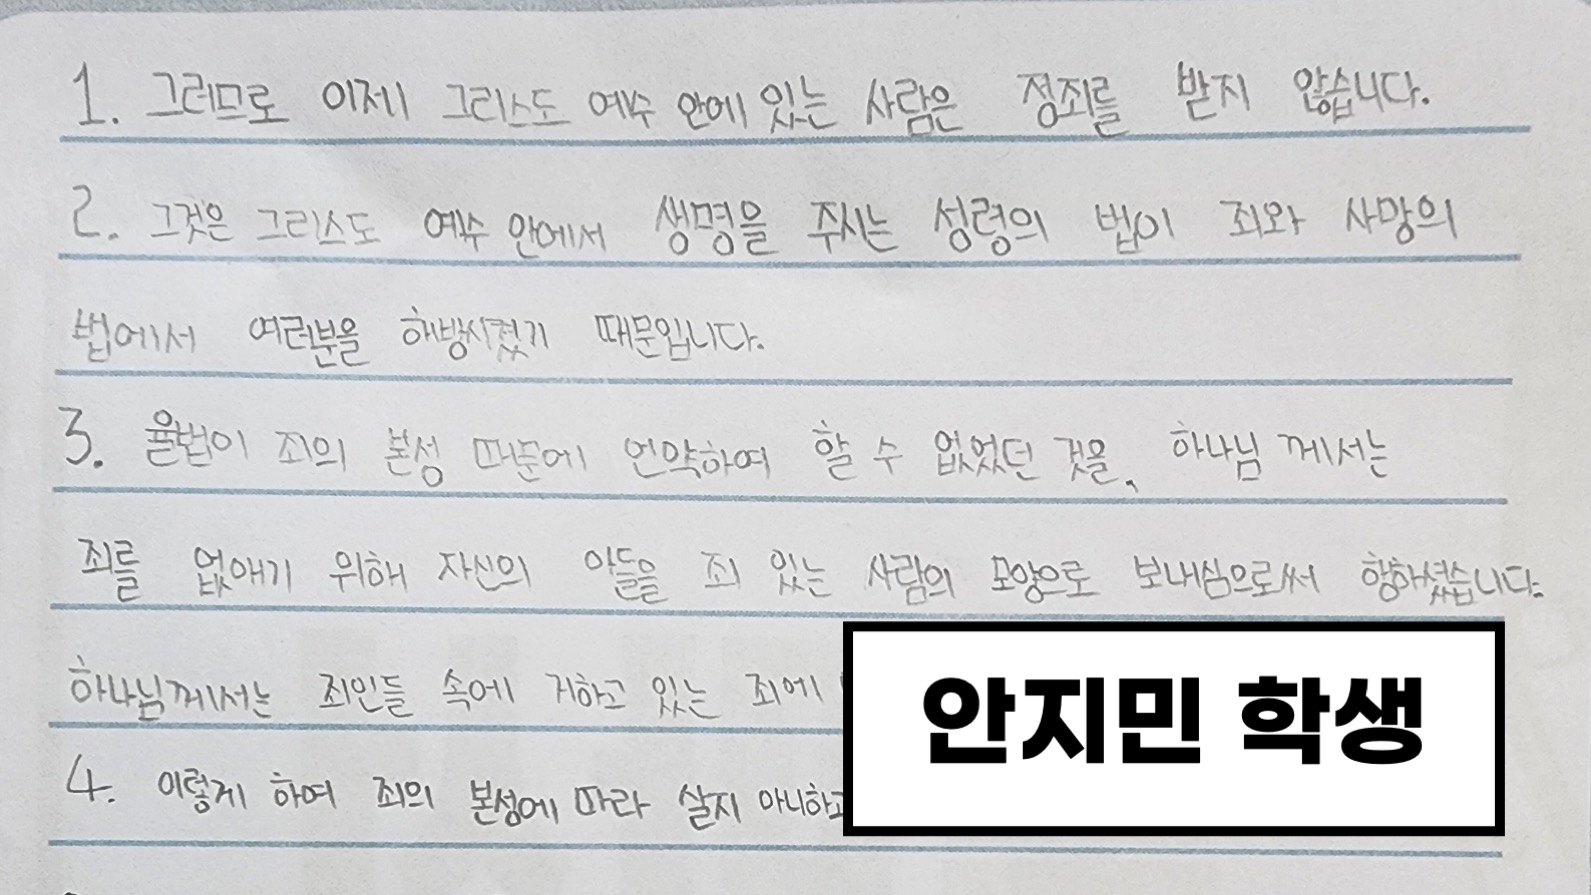 1. 그러므로 이제 그리스도 예수 안에 있는 사람은 정죄를 받지 않습니다.
2. 그것은 그리스도 예수 안에서 생명을 주시는 성령의 법이 죄와 사망의
법에서 여러분을 해방시켰기 때문입니다.
3. 율법이 죄의 본성 때문에 연약하여 할 수 없었던 것을, 하나님께서는
죄를 없애기 위해 자신의 아들을 죄 있는 사람의 모양으로 보내심으로써 행하셨습니다.
하나님께서는 죄인들 속에 거하고 있는 죄에
4. 이렇게 하여 죄의 본성에 따라 살지 아니하고
안지민 학생